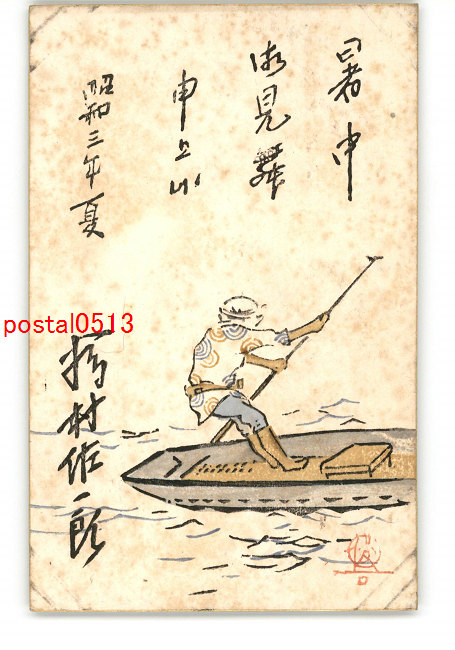 暑中
御見舞
申上候
昭和三年夏
村佐一郎
postal0513